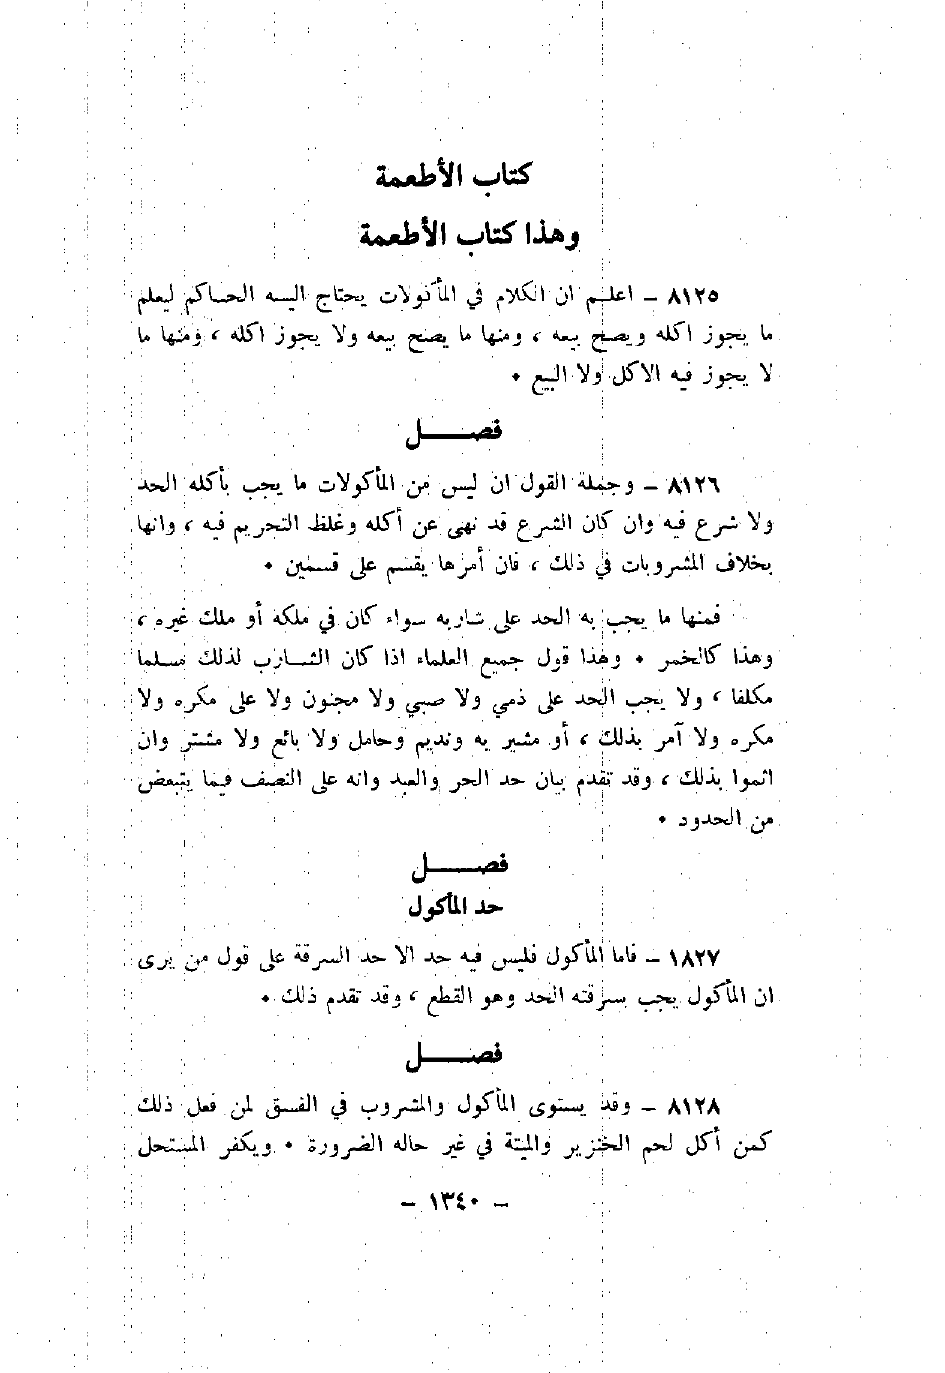 كتاب الأطعمة
وهذا كتاب الأطعمة
٨١٢٥ – اعلـم ان الكلام في المأكولات يحتاج اليـه الحـاكم ليعلم
ما يجوز اكله ويصح بيعه ، ومنها ما يصح بيعه ولا يجوز اكله ، ومنها ما
لا يجوز فيه الاكل ولا البيع ٠
فصـــل
٨١٢٦ – وجملة القول ان ليس من المأكولات ما يجب بأكله الحد
ولا شرع فيه وان كان الشرع قد نهى عن أكله وغلظ التحريم فيه ، وانها
بخلاف المشروبات في ذلك ، فان أمرها يقسم على قسمين ٠
فمنها ما يجب به الحد على شاربه سواء كان في ملكه أو ملك غيره ،
وهذا كالخمر ٠ وهذا قول جميع العلماء اذا كان الشـارب لذلك مسلما
مكلفا ، ولا يجب الحد على ذمي ولا صبي ولا مجنون ولا على مكره ولا
مكره ولا آمر بذلك ، أو مشير به ونديم وحامل ولا بائع ولا مشتر وان
اثموا بذلك ، وقد تقدم بيان حد الحر والعبد وانه على النصف فيما يتبعض
من الحدود ٠
فصـــل
حد المأكول
١٨٢٧ – فاما المأكول فليس فيه حد الا حد السرقة على قول من يرى
ان المأكول يجب بسرقته الحد وهو القطع ، وقد تقدم ذلك ٠
فصـــل
٨١٢٨ – وقد يستوى المأكول والمشروب في الفسق لمن فعل ذلك
كمن أكل لحم الخنزير والميتة في غير حاله الضرورة ٠ ويكفر المستحل
– ١٣٤٠ –